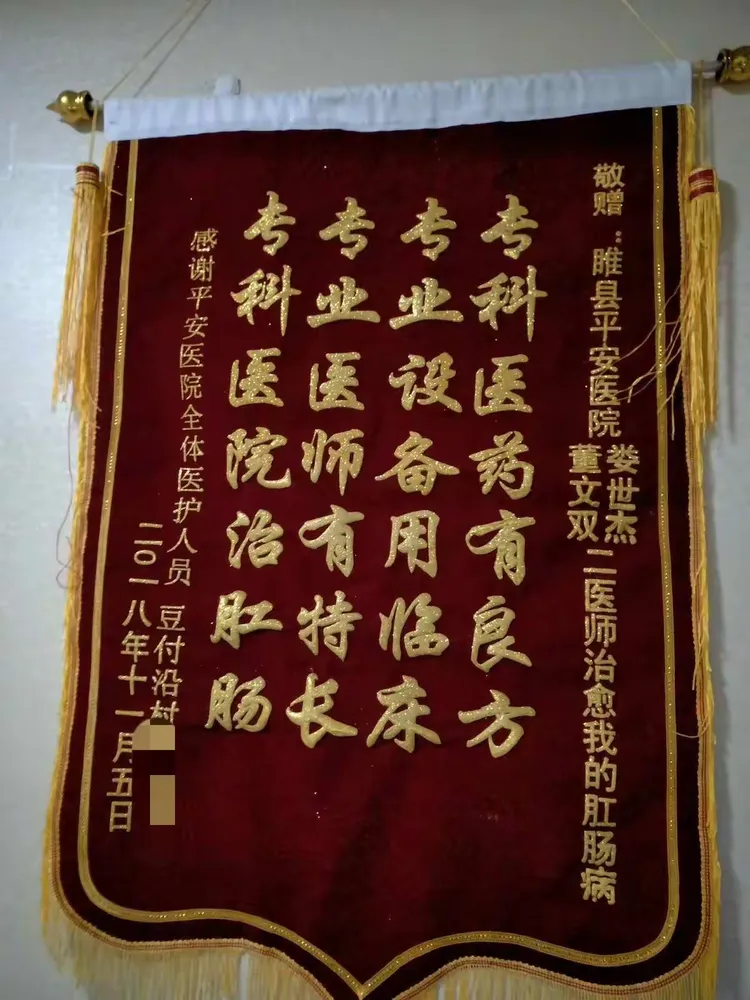 敬赠：睢县平安医院
娄世杰
董文双
二医师治愈我的肛肠病
专科医药有良方
专业设备用临床
专业医师有特长
专科医院治肛肠
感谢平安医院全体医护人员
豆付沿村
二〇一八年十一月五日